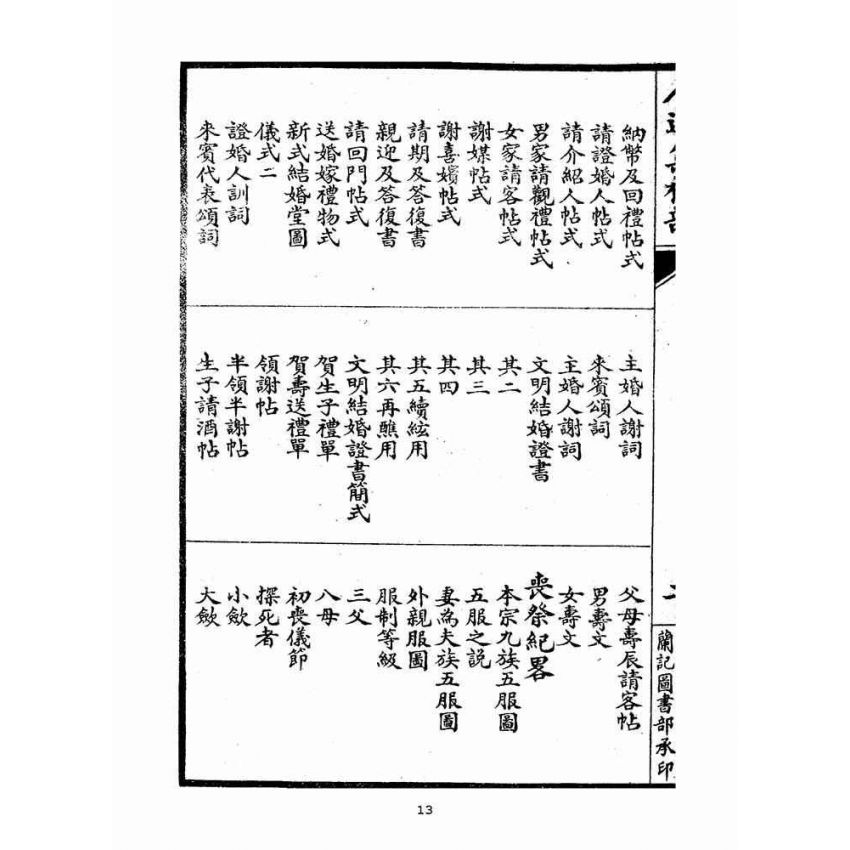 納幣及回禮帖式
請證婚人帖式
請介紹人帖式
男家請觀禮帖式
女家請客帖式
謝媒帖式
謝喜嬪帖式
請期及答復書
親迎及答復書
請回門帖式
送婚嫁禮物式
新式結婚堂圖
儀式二
證婚人訓詞
來賓代表頌詞
主婚人謝詞
來賓頌詞
主婚人謝詞
文明結婚證書
其二
其三
其四
其五續絃用
其六再醮用
文明結婚證書簡式
賀生子禮單
賀壽送禮單
領謝帖
半領半謝帖
生子請酒帖
父母壽辰請客帖
男壽文
女壽文
喪祭紀畧
本宗九族五服圖
五服之説
妻為夫族五服圖
外親服圖
服制等級
三父
八母
初喪儀節
探死者
小斂
大斂
二
蘭記圖書部承印
13